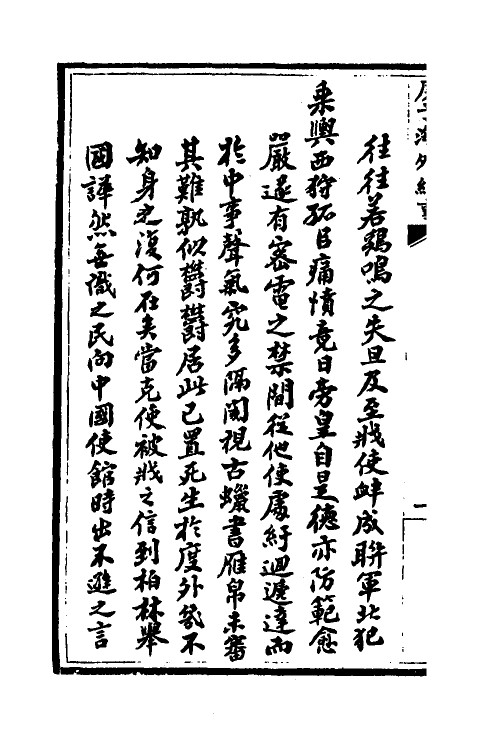 往往若鷄鳴之失旦及至戕使衅成聨軍北犯
乘輿西狩孤臣痛憤竟日旁皇自是德亦防範愈
嚴遂有密電之禁間從他使處紆迴遞達而
於中事聲氣究多隔閡視古蠟書雁帛未審
其難孰似欝欝居此已置死生於度外幾不
知身之復何在矣當克使被戕之信到柏林舉
國譁然無識之民向中國使館時出不遜之言
海外紀事
一